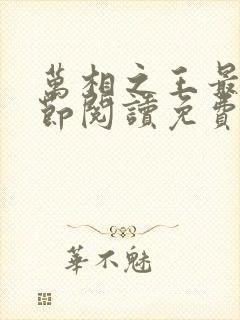 萬相之王最
節閱讀免費
華不魅